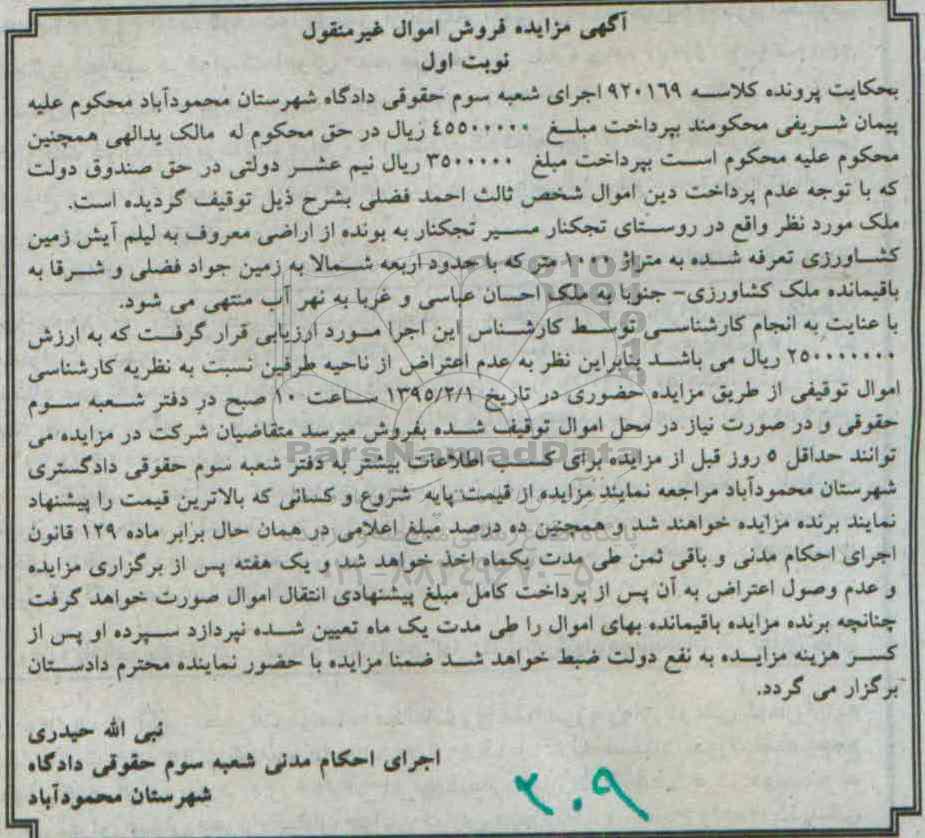 آگهی مزایده فروش اموال غیرمنقول
نوبت اول
بحکایت پرونده کلاسه ۹۲۰۱۶۹ اجرای شعبه سوم حقوقی دادگاه شهرستان محمودآباد محکوم علیه
پیمان شریفی محکومند بپرداخت مبلغ ٤٥٥٠٠٠٠٠٠ ریال در حق محکوم له مالک یدالهی همچنین
محکوم علیه محکوم است بپرداخت مبلغ ۳۵۰۰۰۰۰ ریال نیم عشر دولتی در حق صندوق دولت
که با توجه عدم پرداخت دین اموال شخص ثالث احمد فضلی بشرح ذیل توقیف گردیده است.
ملک مورد نظر واقع در روستای تجکنار مسیر تجکنار به بونده از اراضی معروف به لیلم آیش زمین
کشاورزی تعرفه شده به متراژ ۱۰۰۰ متر که با حدود اربعه شمالا به زمین جواد فضلی و شرقا به
باقیمانده ملک کشاورزی- جنوبا به ملک احسان عباسی و غربا به نهر آب منتهی می شود.
با عنایت به انجام کارشناسی توسط کارشناس این اجرا مورد ارزیابی قرار گرفت که به ارزش
۲۵۰۰۰۰۰۰۰ ریال می باشد بنابراین نظر به عدم اعتراض از ناحیه طرفین نسبت به نظریه کارشناسی
اموال توقیفی از طریق مزایده حضوری در تاریخ ۱۳۹۵/۲/۱ ساعت ۱۰ صبح در دفتر شعبه سوم
حقوقی و در صورت نیاز در محل اموال توقیف شده بفروش میرسد متقاضیان شرکت در مزایده می
توانند حداقل ۵ روز قبل از مزایده برای کسب اطلاعات بیشتر به دفتر شعبه سوم حقوقی دادگستری
شهرستان محمودآباد مراجعه نمایند مزایده از قیمت پایه شروع و کسانی که بالاترین قیمت را پیشنهاد
نمایند برنده مزایده خواهند شد و همچنین ده درصد مبلغ اعلامی در همان حال برابر ماده ۱۲۹ قانون
اجرای احکام مدنی و باقی ثمن طی مدت یکماه اخذ خواهد شد و یک هفته پس از برگزاری مزایده
و عدم وصول اعتراض به آن پس از پرداخت کامل مبلغ پیشنهادی انتقال اموال صورت خواهد گرفت
چنانچه برنده مزایده باقیمانده بهای اموال را طی مدت یک ماه تعیین شده نپردازد سپرده او پس از
کسر هزینه مزایده به نفع دولت ضبط خواهد شد ضمنا مزایده با حضور نماینده محترم دادستان
برگزار می گردد.
نبی الله حیدری
اجرای احکام مدنی شعبه سوم حقوقی دادگاه
شهرستان محمودآباد
۲۰۹
ParsNamadData